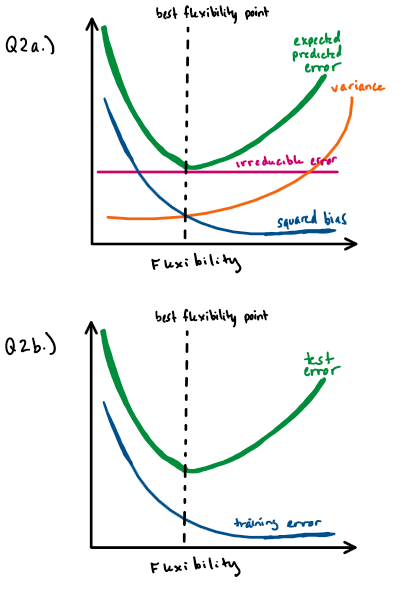 best flexibility point
Q2a.)
expected
predicted
error
variance
irreducible error
squared bias
Flexibility
best flexibility point
Q2b.)
test
error
training error
Flexibility